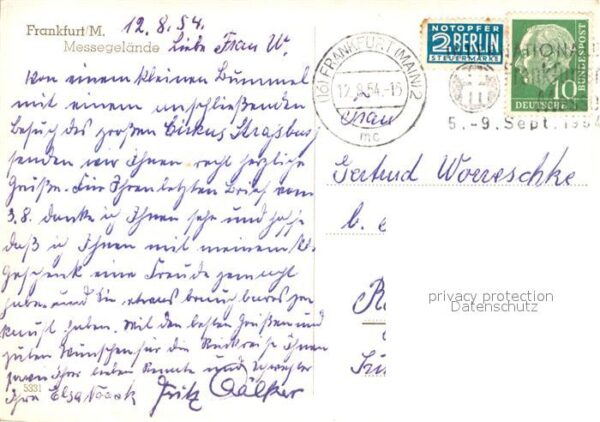 Frankfurt/M.
Messegelände
12.8.54.
Liebe Frau W.
Von einem kleinen Bummel
mit einem anschließenden
Besuch des großen Cirkus Straßburg
senden wir Ihnen recht herzliche
Grüße. Für Ihren letzten Brief vom
3.8. danke ich Ihnen sehr und hoffe
daß ich Ihnen mit meinem
Geschenk eine Freude gemacht
habe und Sie etwas brauchbares
haben. Mit den besten Grüßen und
guten Wünschen für die Rückreise Ihnen
sowie Ihrer lieben und
Ihre Elsa Fritz Völker
5331
NOTOPFER
2 BERLIN
STEUERMARKE
(16) FRANKFURT (MAIN) 2
12.8.54.-15
mc
5.-9. Sept. 1954
10
DEUTSCHE
BUNDESPOST
Frau
Gertrud Woereschke
b.
privacy protection
Datenschutz